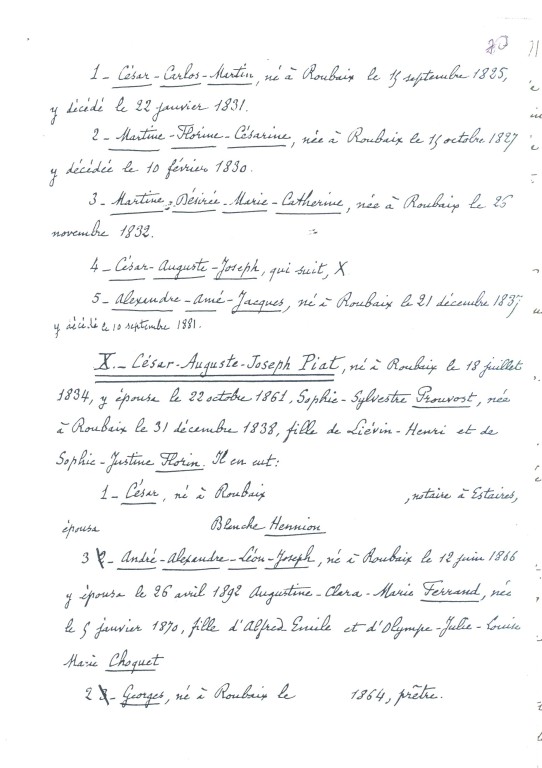 1 - César-Carlos-Martin, né à Roubaix le 15 septembre 1825,
y décédé le 22 janvier 1831.
2 - Martine-Florine-Césarine, née à Roubaix le 15 octobre 1827
y décédée le 10 février 1830.
3 - Martine-Désirée-Marie-Catherine, née à Roubaix le 26
novembre 1832.
4 - César-Auguste-Joseph, qui suit, X
5 - Alexandre-Amé-Jacques, né à Roubaix le 21 décembre 1837
y décédé le 10 septembre 1881.
X. - César-Auguste-Joseph Piat, né à Roubaix le 18 juillet
1834, y épousa le 22 octobre 1861, Sophie-Sylvestre Prouvost, née
à Roubaix le 31 décembre 1838, fille de Liévin-Henri et de
Sophie-Justine Florin. Il en eut:
1 - César, né à Roubaix , notaire à Estaires,
épousa Blanche Hennion
3 2 - André-Alexandre-Léon-Joseph, né à Roubaix le 12 juin 1866
y épousa le 26 avril 1892 Augustine-Clara-Marie Ferrand, née
le 5 janvier 1870, fille d'Alfred Emile et d'Olympe-Julie-Louise
Marie Choquet
2 3 - Georges, né à Roubaix le 1864, prêtre.